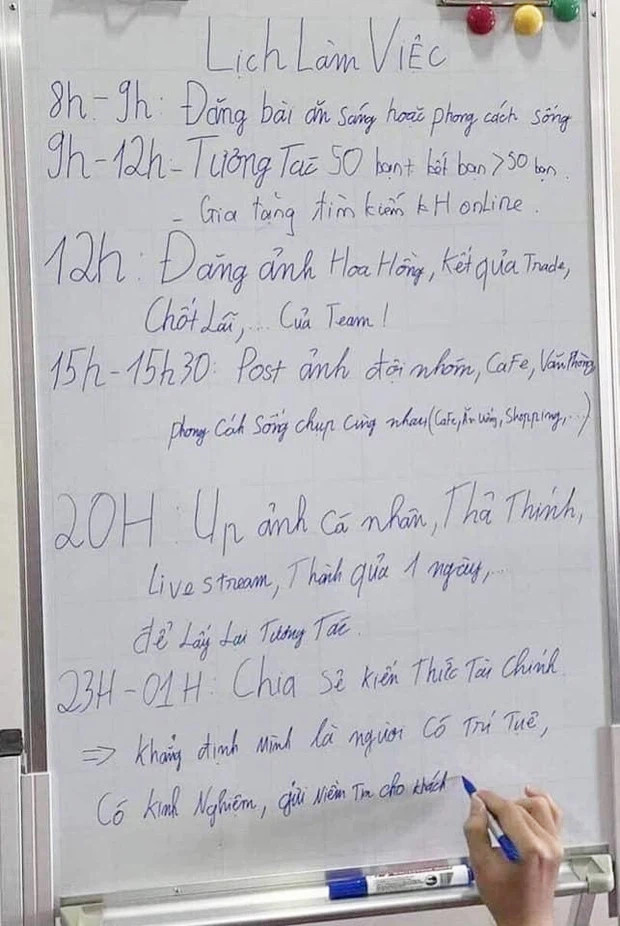 Lịch Làm Việc
8h-9h: Đăng bài ăn sáng hoặc phong cách sống
9h-12h- Tương Tác 50 bạn + kết bạn >50 bạn.
- Gia tăng tìm kiếm KH online.
12h: Đăng ảnh Hoa Hồng, Kết quả Trade,
Chốt Lãi,... Của Team!
15h-15h30: Post ảnh đội nhóm, CaFe, Văn Phòng
phong cách sống chụp cùng nhau (Cafe, Ăn uống, Shopping,...)
20H: Up ảnh cá nhân, Thả Thính,
Livestream, Thành quả 1 ngày,...
để Lấy Lại Tương Tác.
23H-01H: Chia Sẻ kiến Thức Tài Chính.
=> Khẳng định mình là người Có Trí Tuệ,
Có kinh Nghiệm, gửi Niềm Tin cho khách